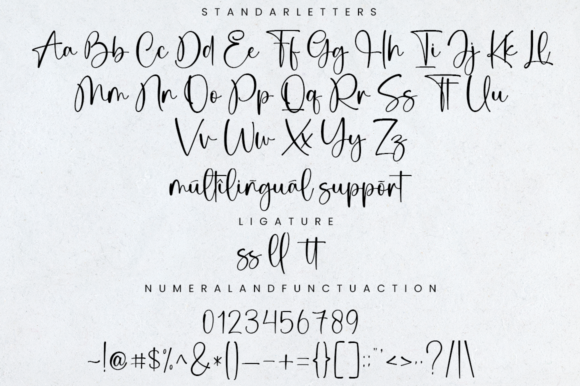 STANDARLETTERS
Aa Bb Cc Dd Ee Ff Gg Hh Ii Jj Kk Ll
Mm Nn Oo Pp Qq Rr Ss Tt Uu
Vv Ww Xx Yy Zz
multilingual support
LIGATURE
ss ll tt
NUMERALANDFUNCTUACTION
0123456789
~!@#$%^&*()—-+={}[]:;"'<>..?/|\